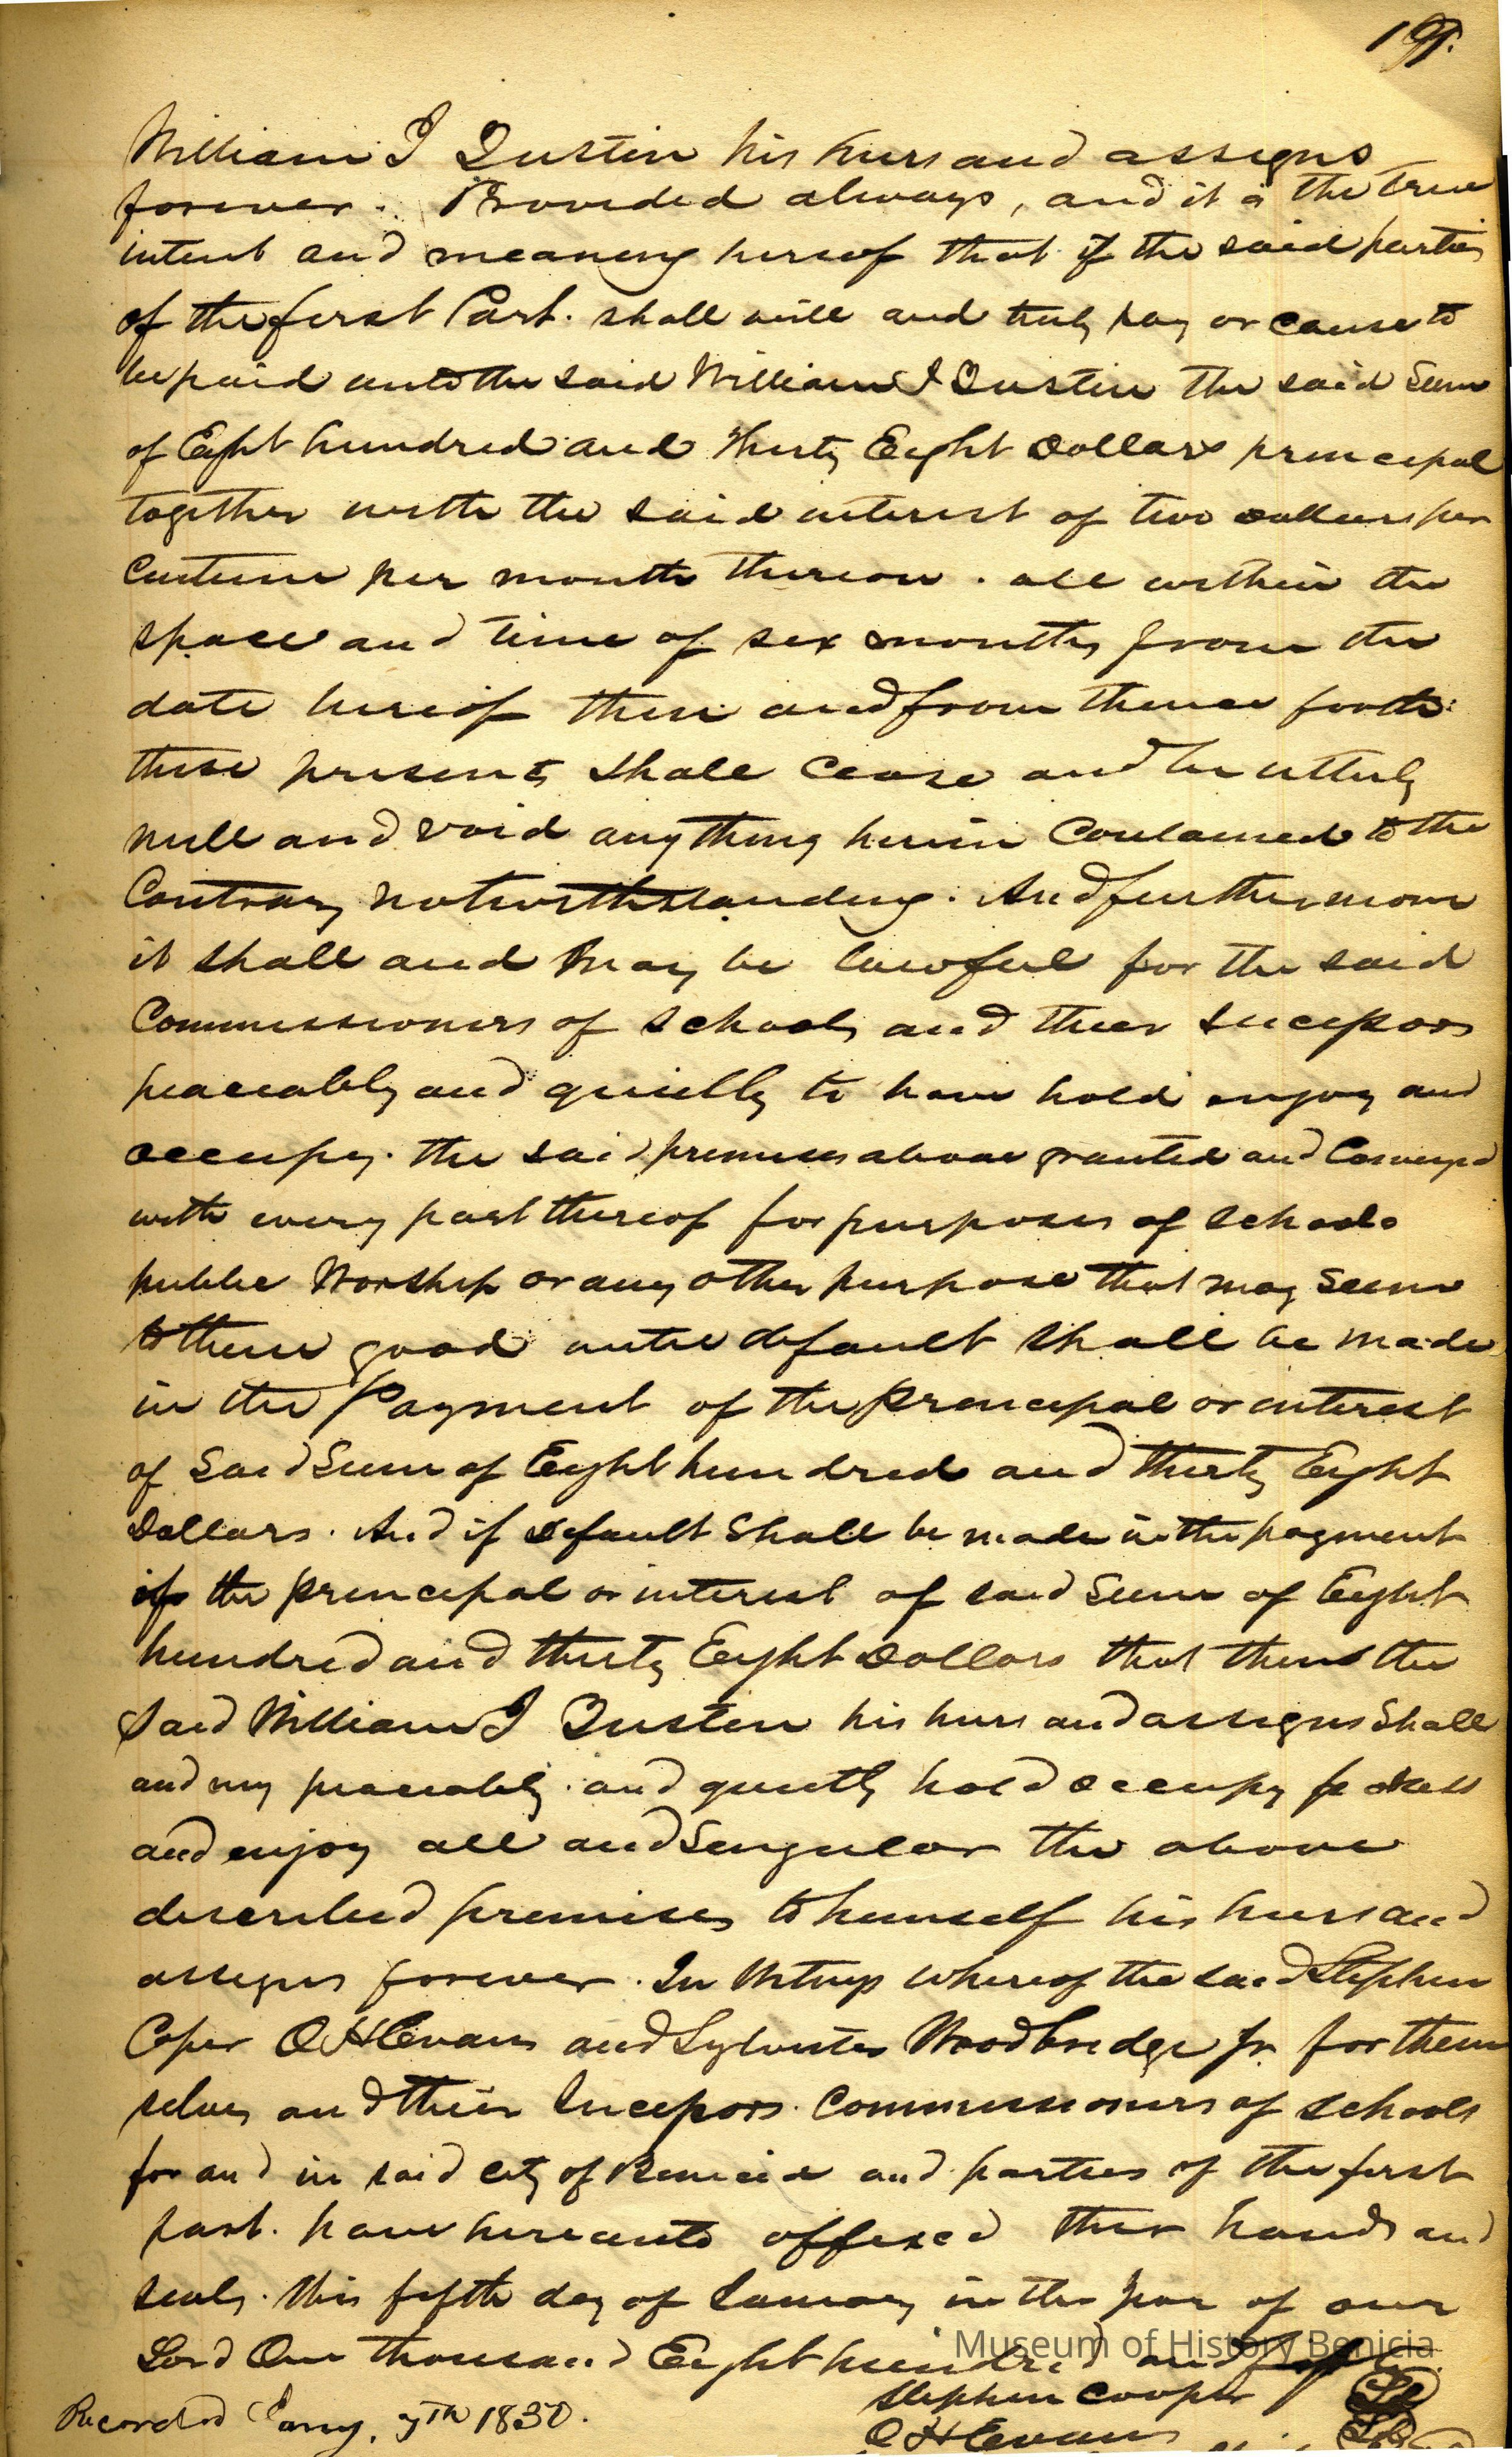 William I Dustin his heirs and assigns
forever. Provided always, and it is the true
intent and meaning hereof that if the said parties
of the first Part. shall will and truly pay or cause to
be paid unto the said William I Dustin the said Sum
of Eight hundred and thirty Eight Dollars principal
together with the said interest of two Dollars per
Centum per month thereon. all within the
space and time of six months from the
date hereof then and from thence forth
these presents shall Cease and be utterly
null and void any thing herein Contained to the
Contrary notwithstanding. And furthermore
it shall and may be lawful for the said
Commissioners of schools and their successors
peaceably and quietly to have hold enjoy and
occupy. the said premises above granted and Conveyed
with every part thereof for purposes of schools
public Worship or any other purpose that may seem
to them good until default shall be made
in the Payment of the Principal or interest
of Said Sum of Eight hundred and thirty Eight
Dollars. And if Default Shall be made in the payment
of the principal or interest of said Sum of Eight
hundred and thirty Eight Dollars that then the
Said William I Dustin his heirs and assigns Shall
and my peaceably and quietly hold occupy possess
and enjoy all and Singular the above
described premises to himself his heirs and
assigns forever. In Witness whereof the said Stephen
Coper O H Evans and Sylvester Woodbridge Jr for them
selves and their Successors Commissioners of schools
for and in said city of Benicia and parties of the first
part. have hereunto affixed their hands and
seals. this fifth day of January in the year of our
Lord One thousand Eight hundred and
Museum of History Benicia
Stephen Cooper
Recorded Jany. 7th 1850.
O H Evans